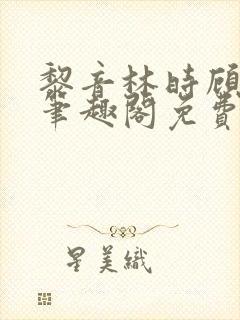 黎音林時頎
筆趣閣免費
星美織